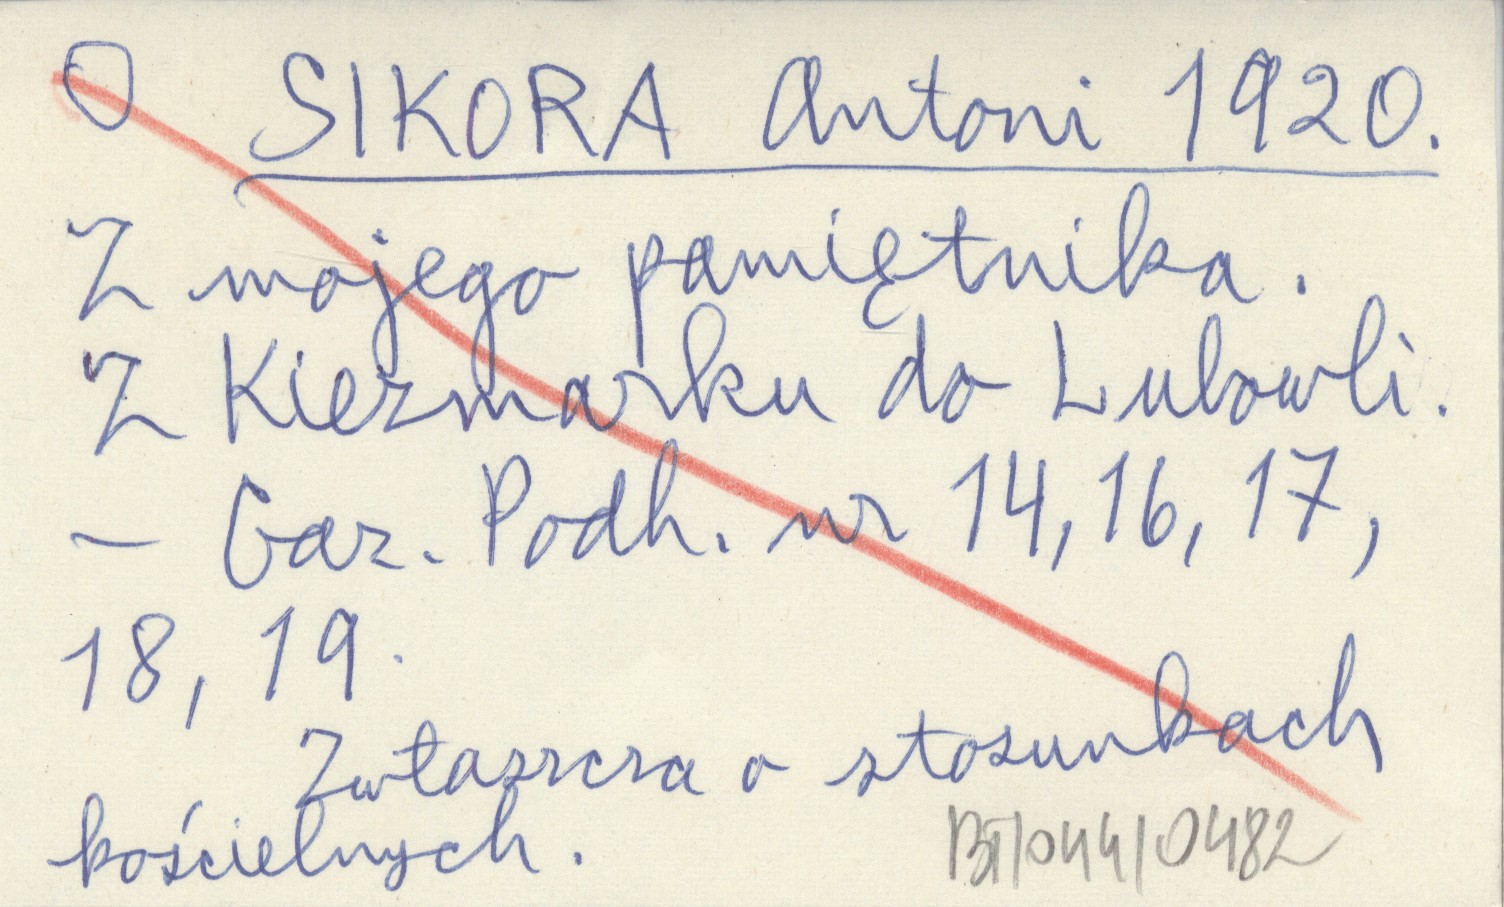 O SIKORA Antoni 1920.
Z mojego pamiętnika.
Z Kiezmarku do Lubowli.
- Gaz. Podh. nr 14, 16, 17,
18, 19.
Zwłaszcza o stosunkach
kościelnych.
BT/044/0482